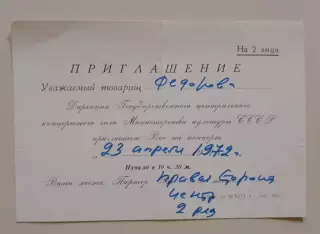 На 2 лица
ПРИГЛАШЕНИЕ
Уважаемый товарищ Федорова
Дирекция Государственного центрального
концертного зала Министерства культуры СССР
приглашает Вас на концерт
„23 апреля 1972 г.
Начало в 19 ч. 30 м.
Ваши места: Партер Правая сторона
центр
2 ряд